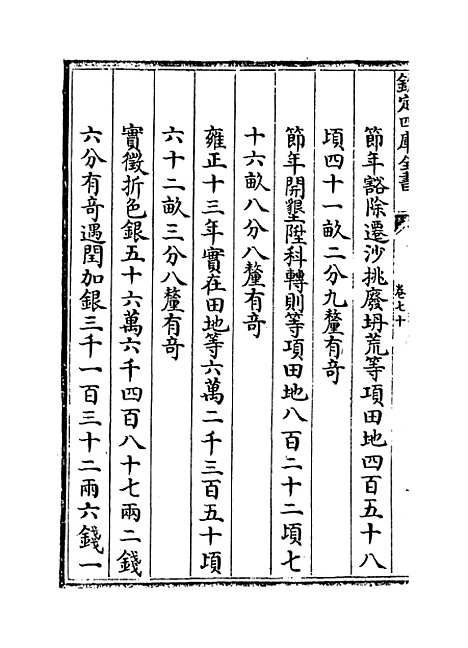 欽定四庫全書
卷七十
節年豁除遷沙挑廢坍荒等項田地四百五十八
頃四十一畝二分九釐有奇
節年開墾陞科轉則等項田地八百二十二頃七
十六畝八分八釐有奇
雍正十三年實在田地等六萬二千三百五十頃
六十二畝三分八釐有奇
實徵折色銀五十六萬六千四百八十七兩二錢
六分有奇遇閏加銀三千一百三十二兩六錢一